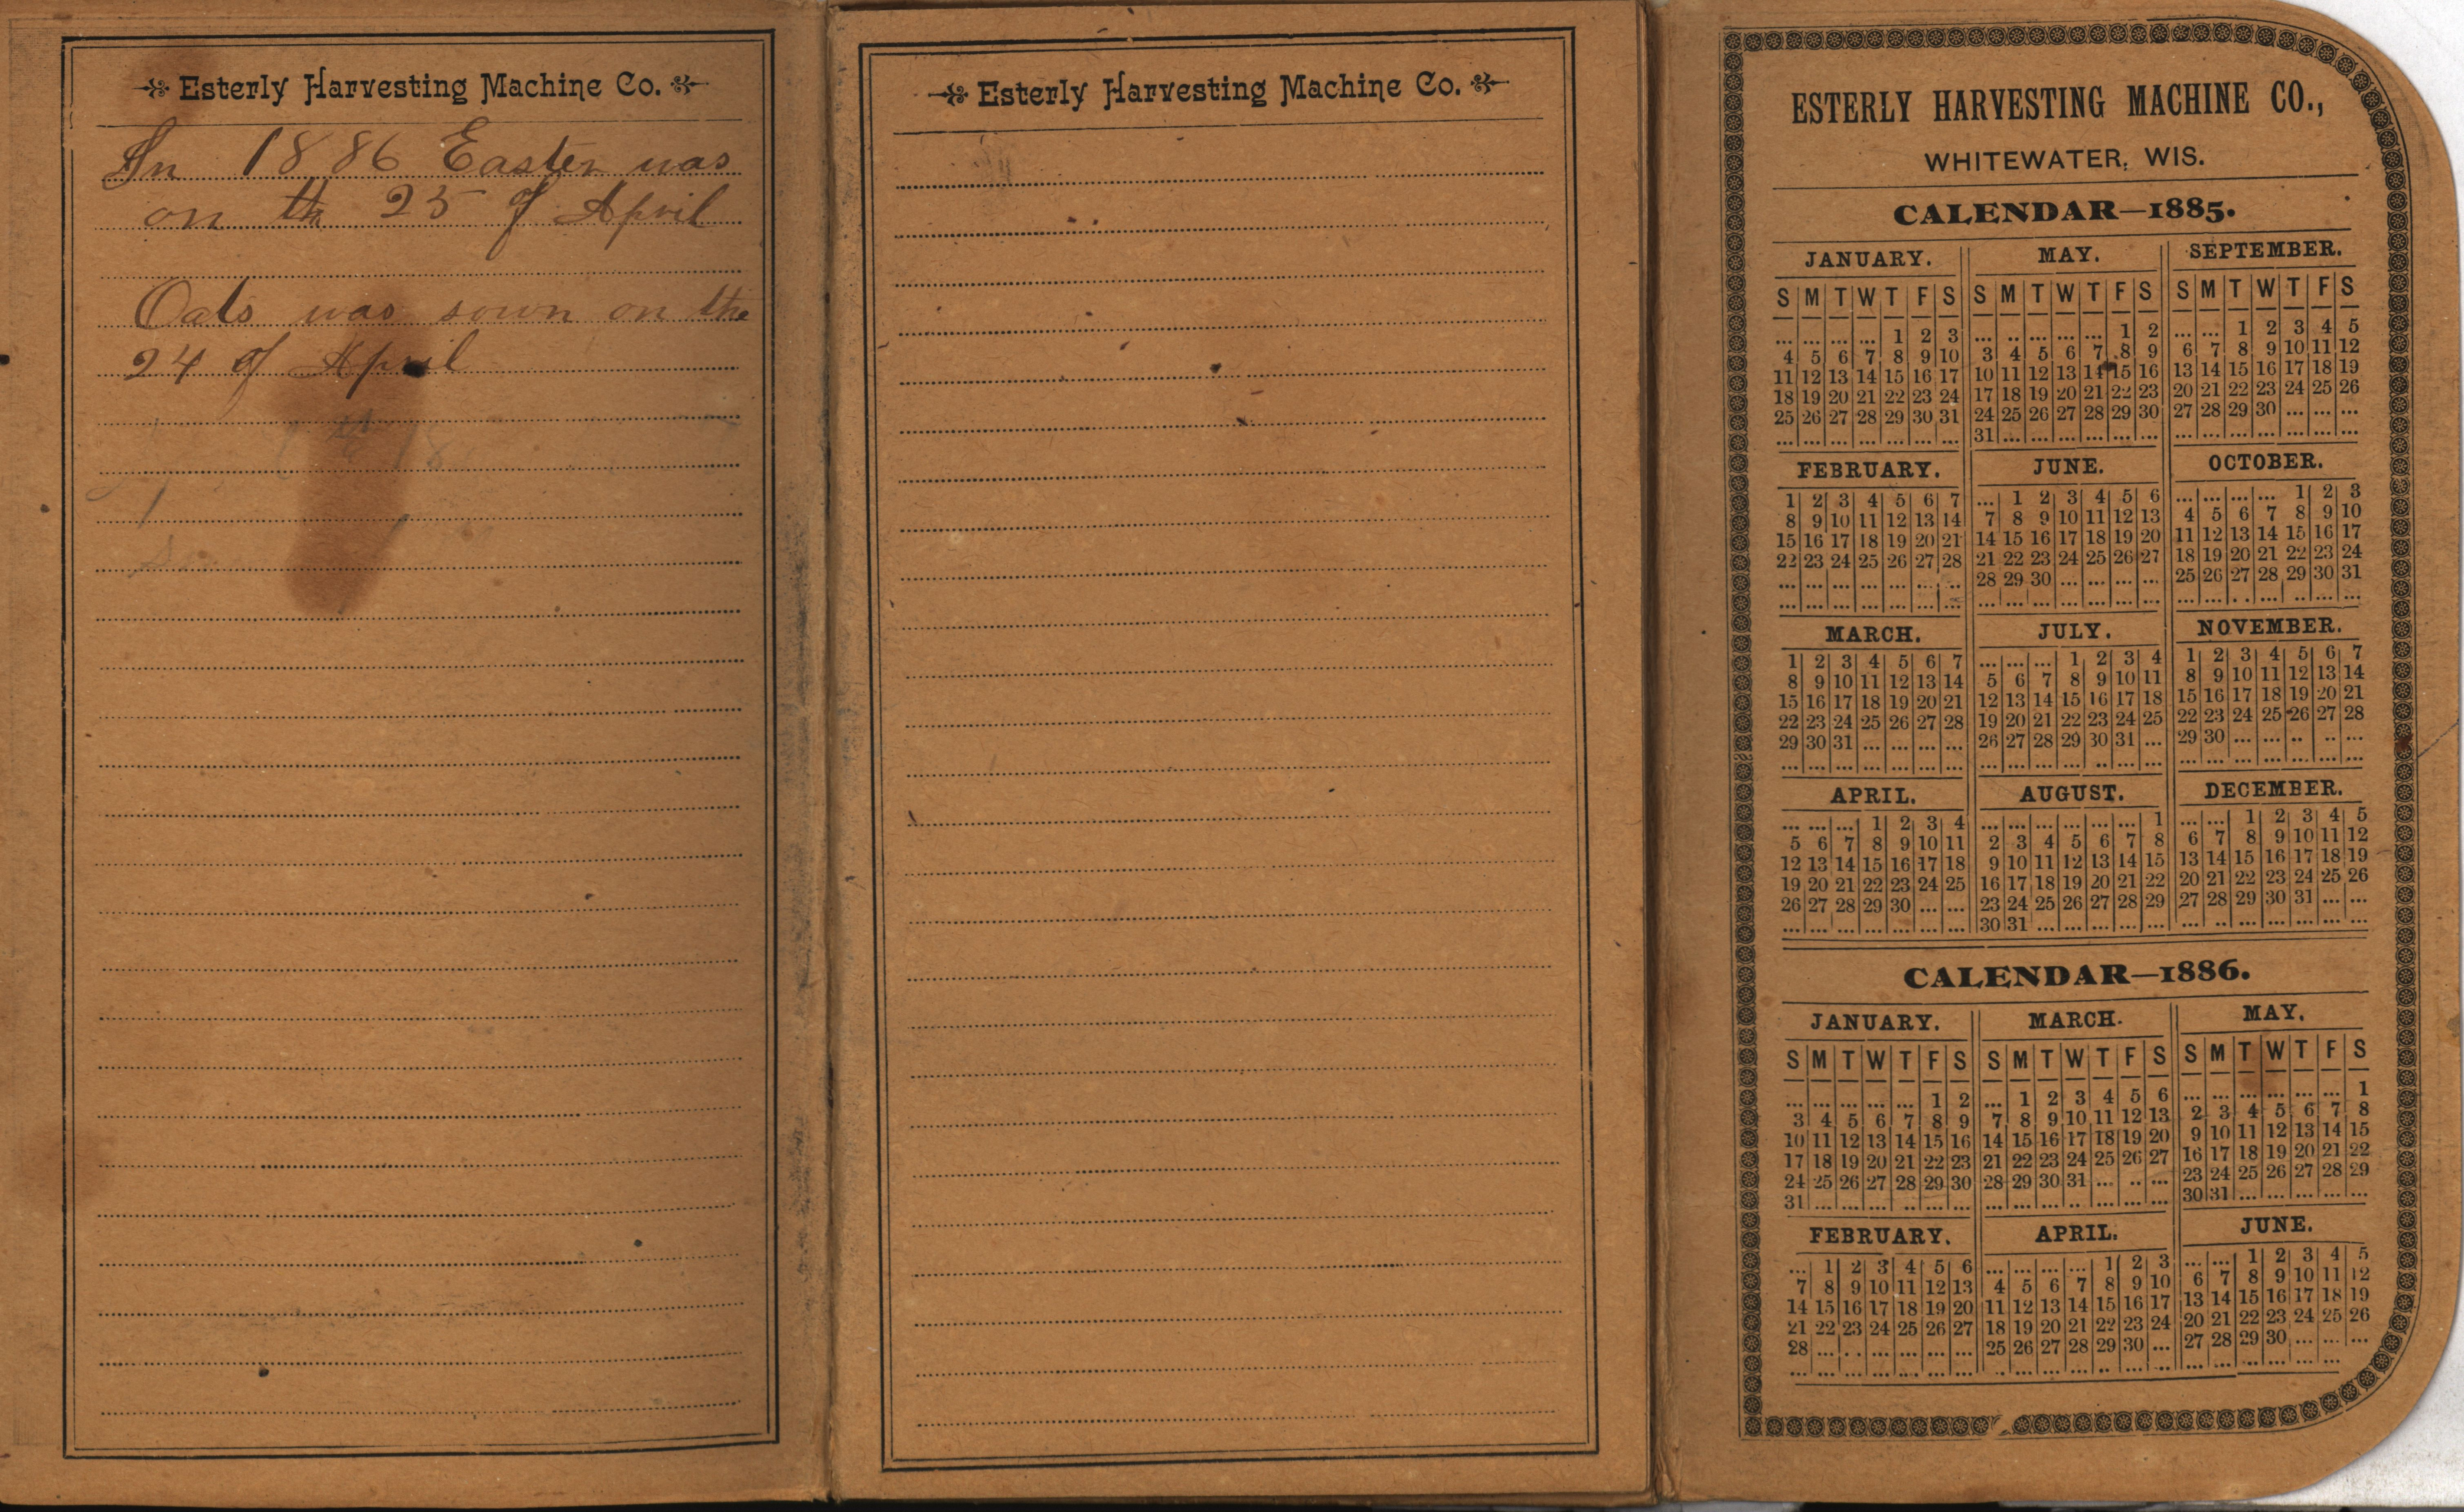 Esterly Harvesting Machine Co.
In 1886 Easter was
on the 25 of April
Oats was sown on the
24 of April
Esterly Harvesting Machine Co.
ESTERLY HARVESTING MACHINE CO.,
WHITEWATER, WIS.
CALENDAR—1885.
JANUARY. MAY. SEPTEMBER.
S M T W T F S S M T W T F S S M T W T F S
... ... ... ... 1 2 3 ... .. ... ... ... 1 2 ... ... 1 2 3 4 5
4 5 6 7 8 9 10 3 4 5 6 7 8 9 6 7 8 9 10 11 12
11 12 13 14 15 16 17 10 11 12 13 14 15 16 13 14 15 16 17 18 19
18 19 20 21 22 23 24 17 18 19 20 21 22 23 20 21 22 23 24 25 26
25 26 27 28 29 30 31 24 25 26 27 28 29 30 27 28 29 30 ... ... ...
... ... ... ... ... ... ... 31 ... ... ... ... ... ... ... ... ... ... ... ... ...
FEBRUARY. JUNE. OCTOBER.
1 2 3 4 5 6 7 ... 1 2 3 4 5 6 ... ... ... ... 1 2 3
8 9 10 11 12 13 14 7 8 9 10 11 12 13 4 5 6 7 8 9 10
15 16 17 18 19 20 21 14 15 16 17 18 19 20 11 12 13 14 15 16 17
22 23 24 25 26 27 28 21 22 23 24 25 26 27 18 19 20 21 22 23 24
... ... ... ... ... ... ... 28 29 30 ... ... ... ... 25 26 27 28 29 30 31
MARCH. JULY. NOVEMBER.
1 2 3 4 5 6 7 ... ... ... 1 2 3 4 1 2 3 4 5 6 7
8 9 10 11 12 13 14 5 6 7 8 9 10 11 8 9 10 11 12 13 14
15 16 17 18 19 20 21 12 13 14 15 16 17 18 15 16 17 18 19 20 21
22 23 24 25 26 27 28 19 20 21 22 23 24 25 22 23 24 25 26 27 28
29 30 31 ... ... ... ... 26 27 28 29 30 31 ... 29 30 ... ... .. .. ...
APRIL. AUGUST. DECEMBER.
... ... ... 1 2 3 4 ... ... ... ... ... ... 1 ... ... 1 2 3 4 5
5 6 7 8 9 10 11 2 3 4 5 6 7 8 6 7 8 9 10 11 12
12 13 14 15 16 17 18 9 10 11 12 13 14 15 13 14 15 16 17 18 19
19 20 21 22 23 24 25 16 17 18 19 20 21 22 20 21 22 23 24 25 26
26 27 28 29 30 ... ... 23 24 25 26 27 28 29 27 28 29 30 31 ... ...
... ... ... ... ... ... ... 30 31 ... ... ... ... ... ... .. ... ... ... ... ...
CALENDAR—1886.
JANUARY. MARCH. MAY.
S M T W T F S S M T W T F S S M T W T F S
... ... ... ... ... 1 2 ... 1 2 3 4 5 6 ... ... ... ... ... ... 1
3 4 5 6 7 8 9 7 8 9 10 11 12 13 2 3 4 5 6 7 8
10 11 12 13 14 15 16 14 15 16 17 18 19 20 9 10 11 12 13 14 15
17 18 19 20 21 22 23 21 22 23 24 25 26 27 16 17 18 19 20 21 22
24 25 26 27 28 29 30 28 29 30 31 ... .. ... 23 24 25 26 27 28 29
31 ... ... ... .. ... ... ... ... ... .. ... ... ... 30 31 ... ... ... ... ...
FEBRUARY. APRIL. JUNE.
... 1 2 3 4 5 6 ... ... ... ... 1 2 3 ... ... 1 2 3 4 5
7 8 9 10 11 12 13 4 5 6 7 8 9 10 6 7 8 9 10 11 12
14 15 16 17 18 19 20 11 12 13 14 15 16 17 13 14 15 16 17 18 19
21 22 23 24 25 26 27 18 19 20 21 22 23 24 20 21 22 23 24 25 26
28 ... .. ... ... ... ... 25 26 27 28 29 30 ... 27 28 29 30 ... ... ...